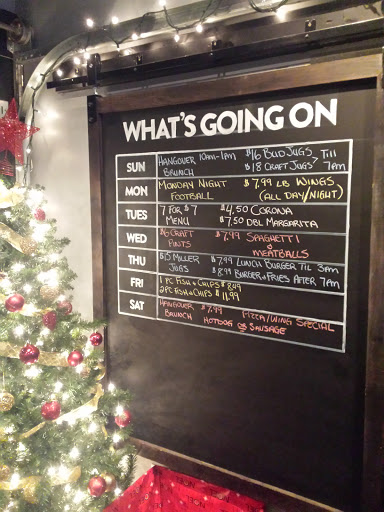 WHAT'S GOING ON
SUN HANGOVER 10AM-1PM $16 BUD JUGS Till
BRUNCH $18 CRAFT JUGS 7PM
MON MONDAY NIGHT $7.99 LB WINGS
FOOTBALL (ALL DAY/NIGHT)
TUES 7 FOR $7 $4.50 CORONA
MENU $7.50 DBL MARGARITA
WED $6 CRAFT $7.49 SPAGHETTI
PINTS & MEATBALLS
THU $15 MILLER $7.99 LUNCH BURGER TIL 3PM
JUGS $8.99 BURGER & FRIES AFTER 7PM
FRI 1 PC FISH & CHIPS $8.49
2 PC FISH & CHIPS $11.99
SAT HANGOVER $7.99 PIZZA/WING SPECIAL
BRUNCH HOTDOG OR SAUSAGE
NOEL